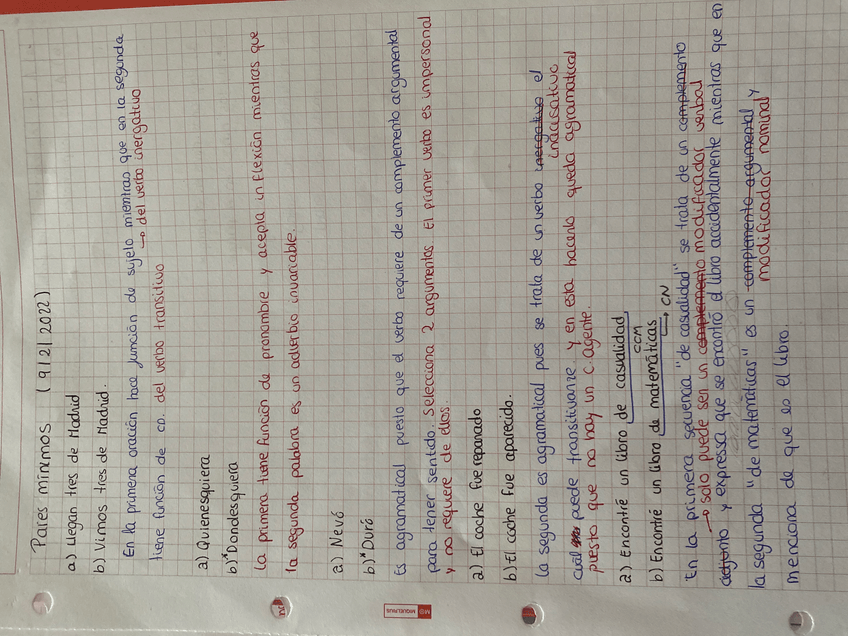 Pares mínimos (9/2/2022)
a) Llegan tres de Madrid
b) Vimos tres de Madrid.
En la primera oración hace función de sujeto mientras que en la segunda
→ del verbo inergativo
tiene función de CD. del verbo transitivo
a) Quienesquiera
b)*Dondesquiera
La primera tiene función de pronombre y acepta la flexión mientras que
la segunda palabra es un adverbio invariable.
a) Nevó
b)*Duró
Es agramatical puesto que el verbo requiere de un complemento argumental
para tener sentido. Selecciona 2 argumentos El primer verbo es impersonal
y no requiere de ellos.
a) El coche fue reparado
b) El coche fue aparecido.
La segunda es agramatical pues se trata de un verbo inergativo el
inacusativo
cuál puede transitivarse y en esta hacerlo queda agramatical
puesto que no hay un C. agente.
a) Encontré un libro de casualidad
CCM
b) Encontré un libro de matemáticas → CN
En la primera secuencia "de casualidad" se trata de un complemento
→ solo puede ser un complemento modificador verbal
adjunto y expressa que se encontró el libro accidentalmente mientras que en
la segunda "de matemáticas" es un complemento argumental y
modificador nominal
menciona de que es el libro.
MIQUELRIUS